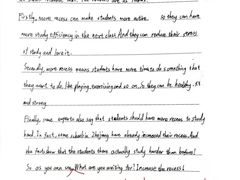 Firstly, more recess can make students more active. so they can have
more study efficiency in the next class. And they can reduce their stress
of study and love it.
Secondly, more recess means students have more times to do something that
they want to do. like playing, exercising and so on. So they can be healthy
and strong.
Finally, some experts also say that students should have more recess to study
hard. In fact, some schools in Zhejiang have already increased their recess. And
the facts shown that the students there actually study harder than before!
So as you can see, What are you waiting for? Increase the recess!